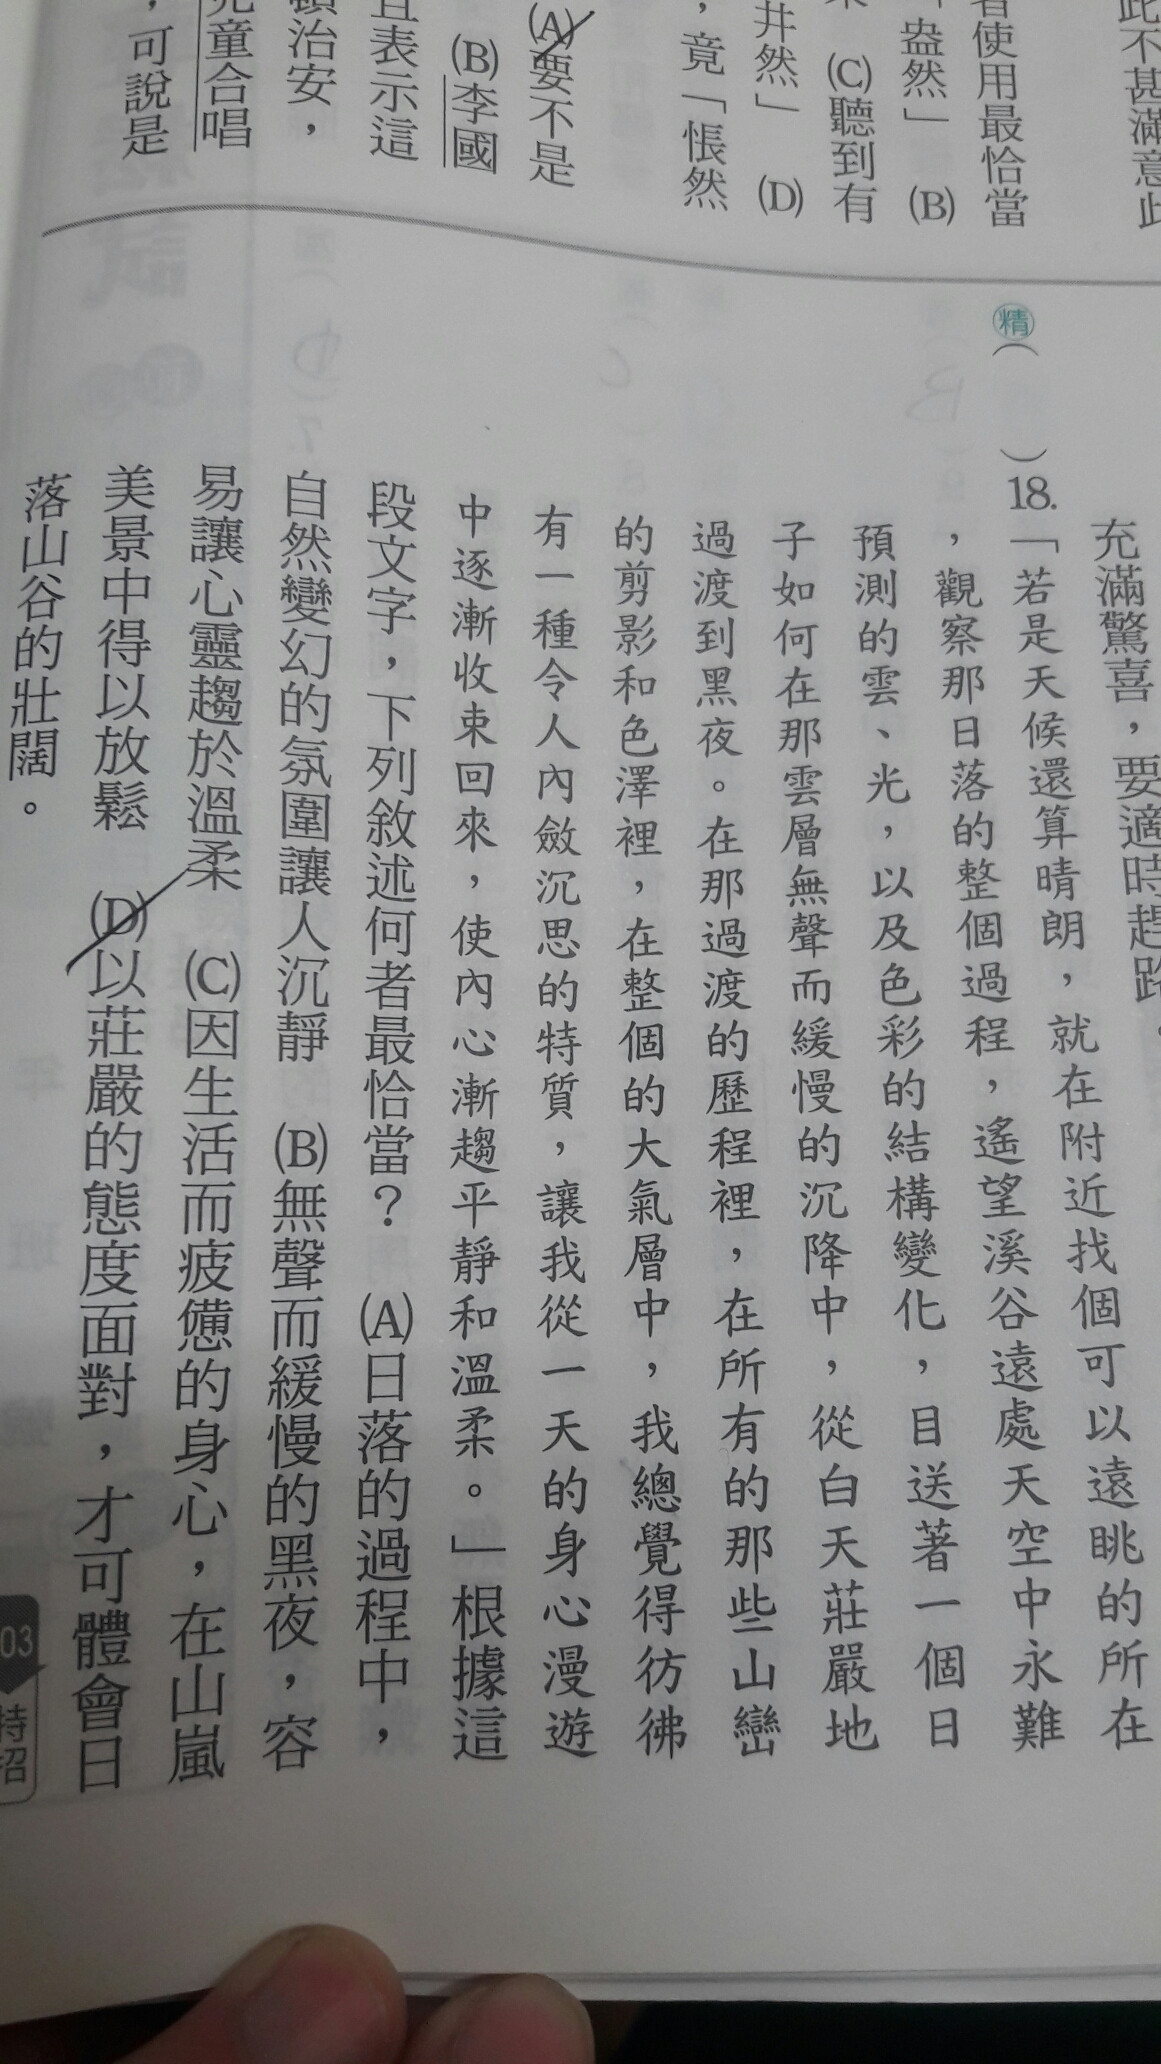 此不甚滿意此
者使用最恰當
「盎然」 (B)
(C)聽到有
井然」 (D)
，竟「悵然
(A)要不是
(B)李國
且表示這
頓治安，
兒童合唱
，可說是
充滿驚喜，要適時趕路。
精( )18.「若是天候還算晴朗，就在附近找個可以遠眺的所在
，觀察那日落的整個過程，遙望溪谷遠處天空中永難
預測的雲、光，以及色彩的結構變化，目送著一個日
子如何在那雲層無聲而緩慢的沉降中，從白天莊嚴地
過渡到黑夜。在那過渡的歷程裡，在所有的那些山巒
的剪影和色澤裡，在整個的大氣層中，我總覺得彷彿
有一種令人內斂沉思的特質，讓我從一天的身心漫遊
中逐漸收束回來，使內心漸趨平靜和溫柔。」根據這
段文字，下列敘述何者最恰當？ (A)日落的過程中，
自然變幻的氛圍讓人沉靜 (B)無聲而緩慢的黑夜，容
易讓心靈趨於溫柔 (C)因生活而疲憊的身心，在山嵐
美景中得以放鬆 (D)以莊嚴的態度面對，才可體會日
落山谷的壯闊。
03
特招